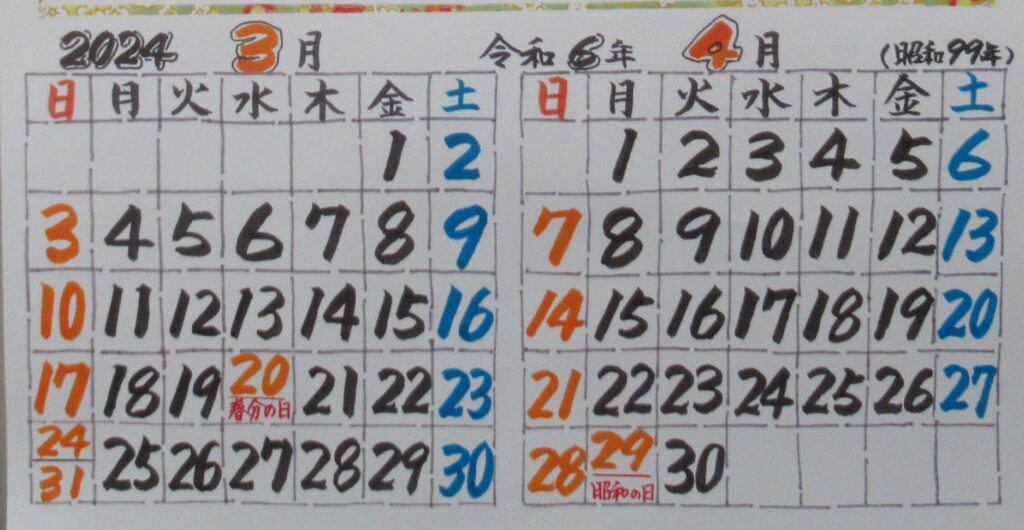 2024 3月 令和6年 4月 (昭和99年)
日 月 火 水 木 金 土
1 2
3 4 5 6 7 8 9
10 11 12 13 14 15 16
17 18 19 20 21 22 23
春分の日
24 25 26 27 28 29 30
31
日 月 火 水 木 金 土
1 2 3 4 5 6
7 8 9 10 11 12 13
14 15 16 17 18 19 20
21 22 23 24 25 26 27
28 29 30
昭和の日